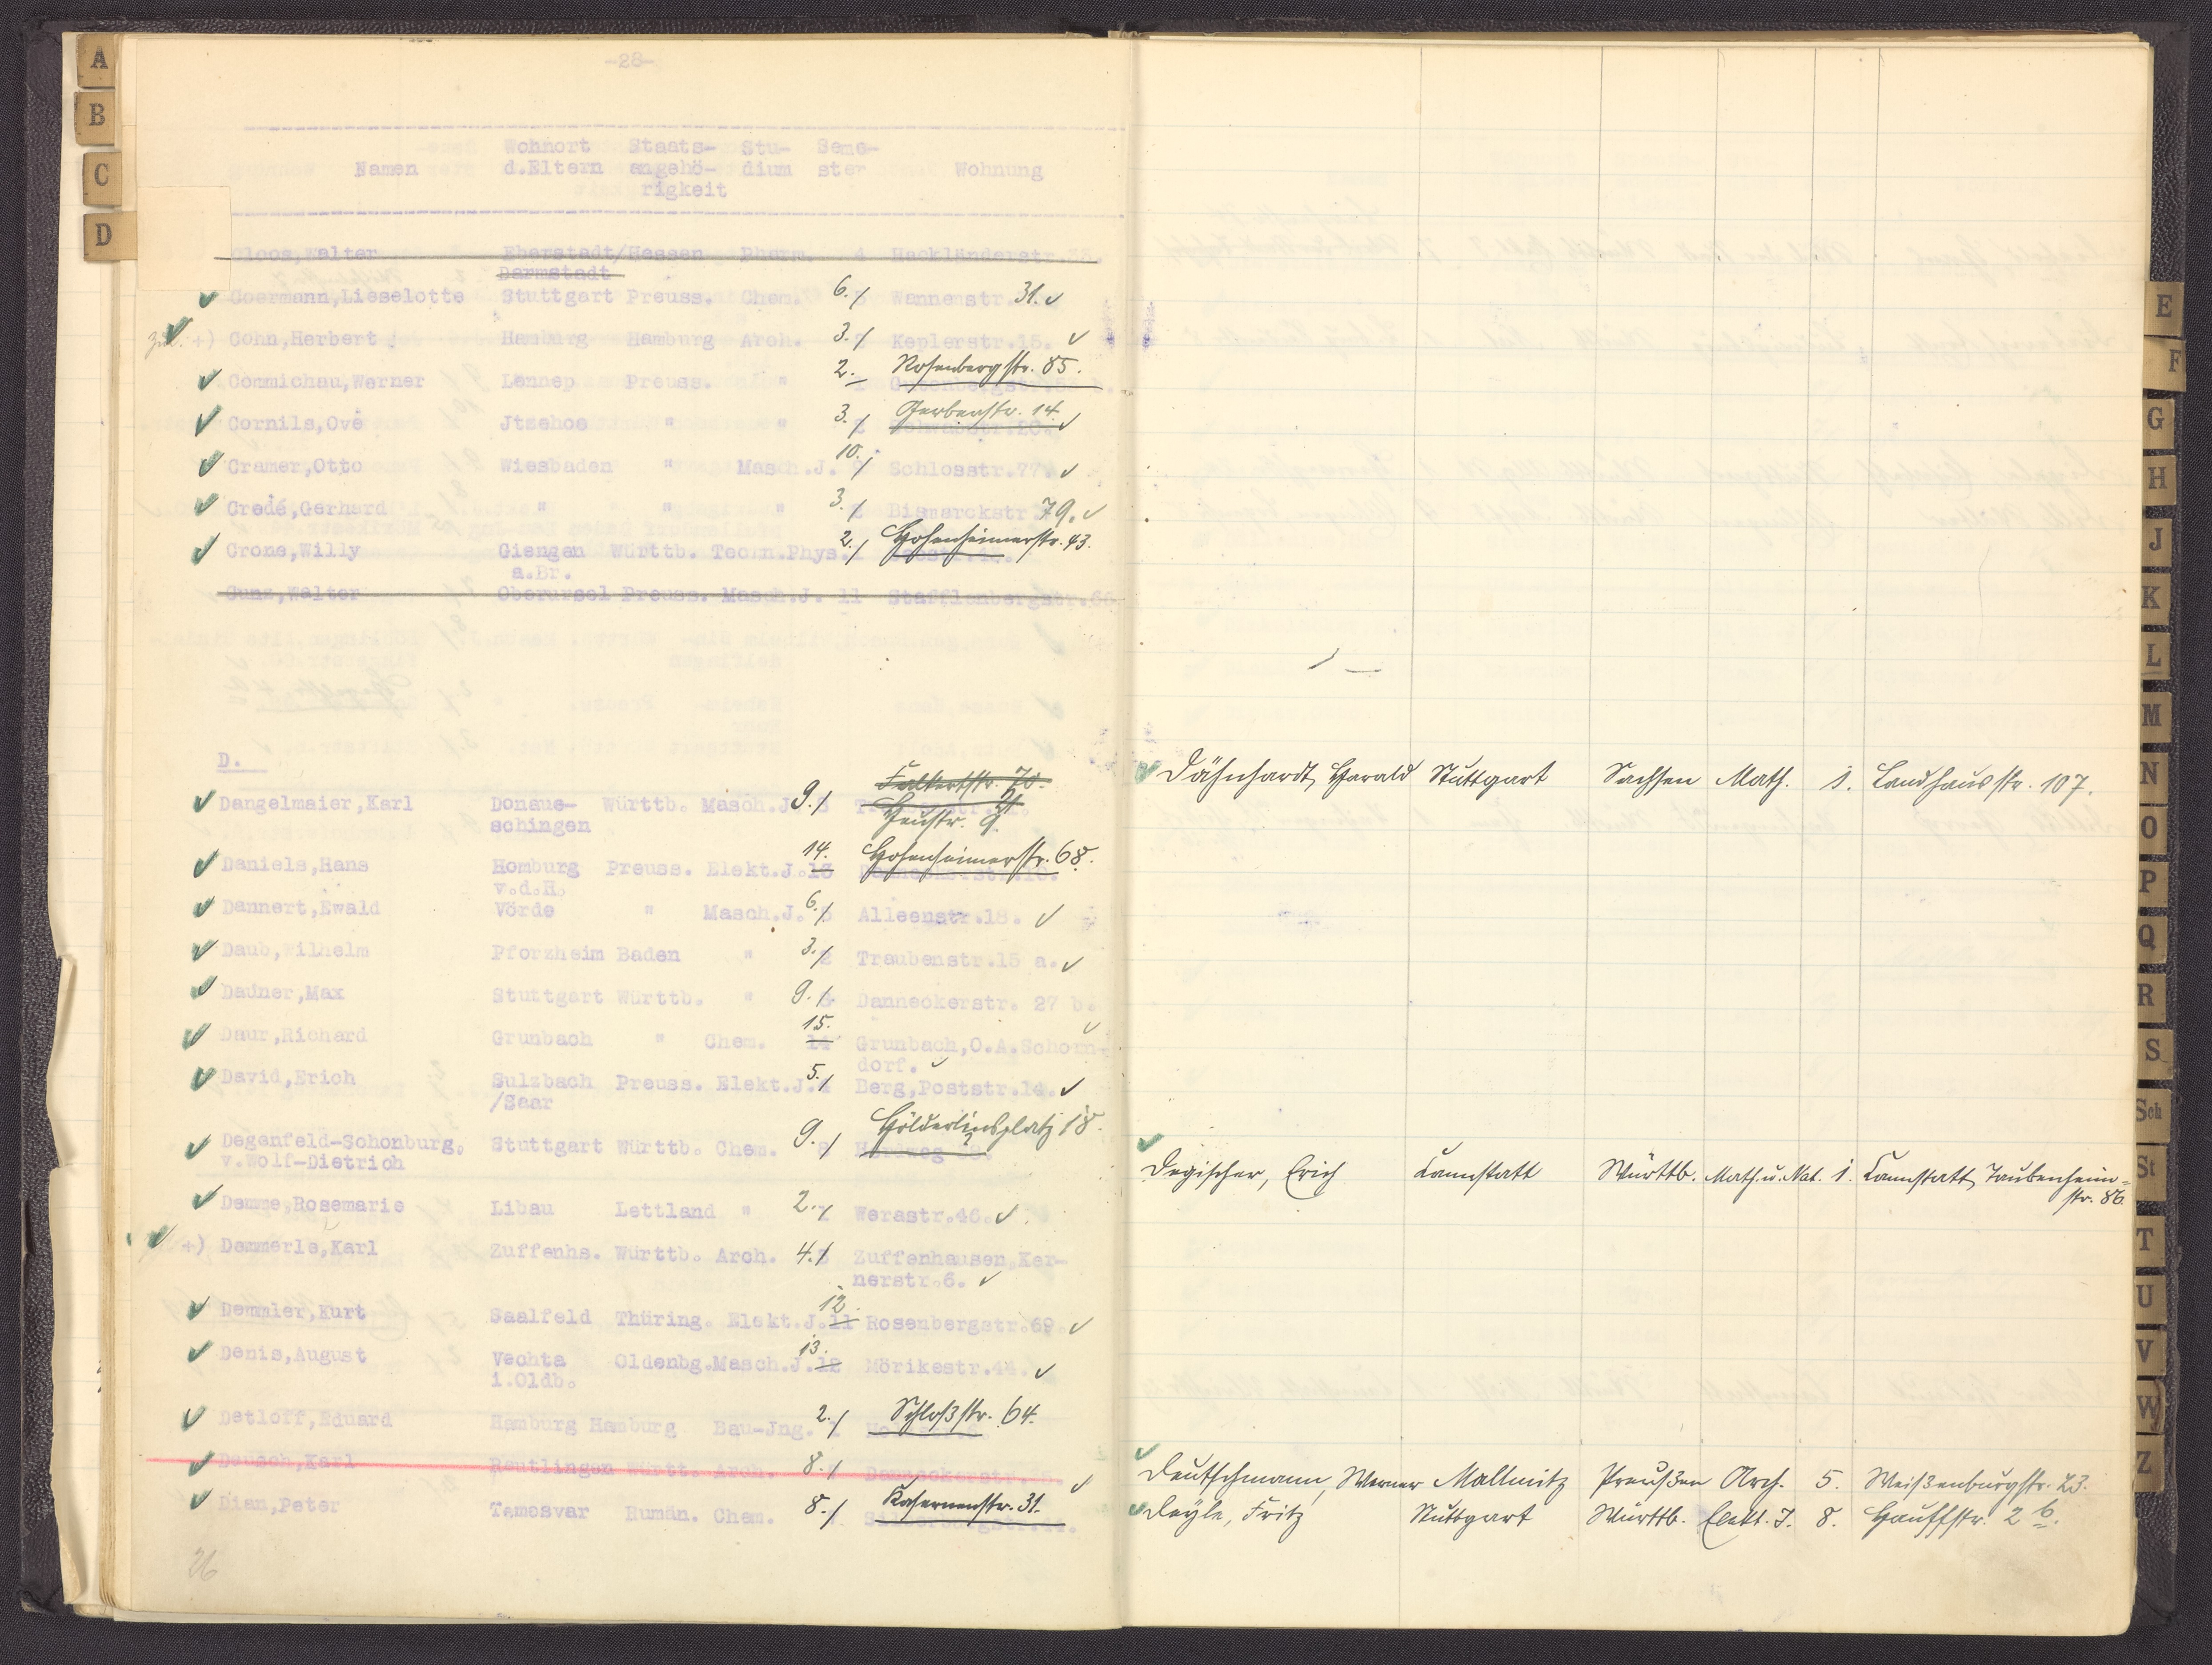 -28-
Namen Wohnort d.Eltern Staats-angehö-rigkeit Stu-dium Seme-ster Wohnung
Cloos,Walter Eberstadt/Hessen Pharm. 4 Hackländerstr.
Darmstadt
Coermann,Lieselotte Stuttgart Preuss. Chem. 6. Wannenstr. 31.
+) Cohn,Herbert Hamburg Hamburg Arch. 3. Keplerstr.15.
Commichau,Werner Lennep Preuss. " 2. Rosenbergstr. 85.
Cornils,Ove Jtzehoe " " 3. Gerberstr. 14.
Cramer,Otto Wiesbaden " Masch.J. 10. Schlosstr.77
Credé,Gerhard " " " 3. Bismarckstr. 79.
Crone,Willy Giengen Württb. Techn.Phys. 2. Hohenheimerstr. 43.
a.Br.
Cunz,Walter Oberursel Preuss. Masch.J. 11 Stafflenbergstr.
D.
Falkertstr. 70.
Dangelmaier,Karl Donaue- Württb. Masch.J. 9.
schingen Heustr. 9.
Daniels,Hans Homburg Preuss. Elekt.J. 13 14. Hohenheimerstr. 68.
v.d.H.
Dannert,Ewald Vörde " Masch.J. 6. Alleenstr.18.
Daub,Wilhelm Pforzheim Baden " 3. Traubenstr.15 a.
Dauner,Max Stuttgart Württb. " 9. Danneckerstr. 27 b.
Daur,Richard Grunbach " Chem. 14 15. Grunbach,O.A.Schorn-
dorf.
David,Erich Sulzbach Preuss. Elekt.J. 5. Berg,Poststr.14.
/Saar
Degenfeld-Schonburg, Stuttgart Württb. Chem. 9. Hölderlinsplatz 18.
v.Wolf-Dietrich
Demme,Rosemarie Libau Lettland " 2. Werastr.46.
+) Demmerle,Karl Zuffenhs. Württb. Arch. 4. Zuffenhausen,Ker-
nerstr.6.
Demmler,Kurt Saalfeld Thüring. Elekt.J. 11 12. Rosenbergstr.69.
Denis,August Vechta Oldenbg.Masch.J. 12 13. Mörikestr.44.
i.Oldb.
Detloff,Eduard Hamburg Hamburg Bau-Jng. 2. Schloßstr. 64.
Deusch,Karl Reutlingen Württ. Arch. 8. Danneckerstr.
Dian,Peter Temesvar Rumän. Chem. 8. Kasernenstr. 31.
26
Dähnhardt, Harald Stuttgart Sachsen Math. 1. Landhausstr. 107.
Degischer, Erich Cannstatt Württb. Math. u. Nat. 1. Cannstatt, Taubenheim=
str. 86.
Deutschmann, Werner Mallmitz Preußen Arch. 5. Weißenburgstr. 23.
Deyle, Fritz Stuttgart Württb. Elekt. J. 8. Hauffstr. 2 b.
A
B
C
D
E
F
G
H
J
K
L
M
N
O
P
Q
R
S
Sch
St
T
U
V
W
Z